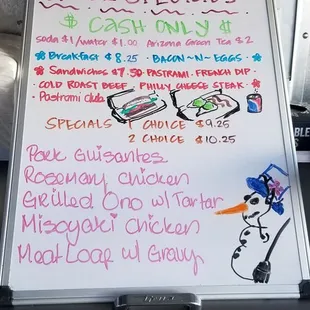 $ CASH ONLY $
soda $1/water $1.00 Arizona Green Tea $2
Breakfast $8.25 · BACON~N~EGGS ·
Sandwiches $7.50 · PASTRAMI · FRENCH DIP ·
COLD ROAST BEEF PHILLY CHEESE STEAK ·
Pastrami club
SPECIALS 1 CHOICE $9.25
2 CHOICE $10.25
Pork Guisantes
Rosemary chicken
Grilled Ono w/Tartar
Misoyaki chicken
Meat Loaf w/ Gravy